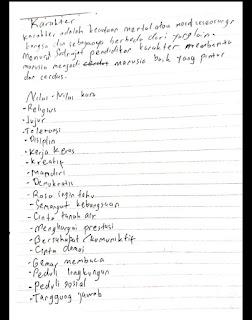 Karakter
Karakter adalah keadaan mental atau moral seseorang
bangsa dan sebagainya berbeda dari yang lain.
Menurut Sudrajat pendidikan karakter membentuk
manusia menjadi manusia baik yang pintar
dan cerdas.
Nilai - Nilai
- Religius
- Jujur
- Toleransi
- Disiplin
- Kerja Keras
- Kreatif
- Mandiri
- Demokratis
- Rasa ingin tahu
- Semangat kebangsaan
- Cinta tanah air
- Menghargai prestasi
- Bersahabat / komuniktif
- Cinta damai
- Gemar membaca
- Peduli lingkungan
- Peduli sosial
- Tanggung jawab